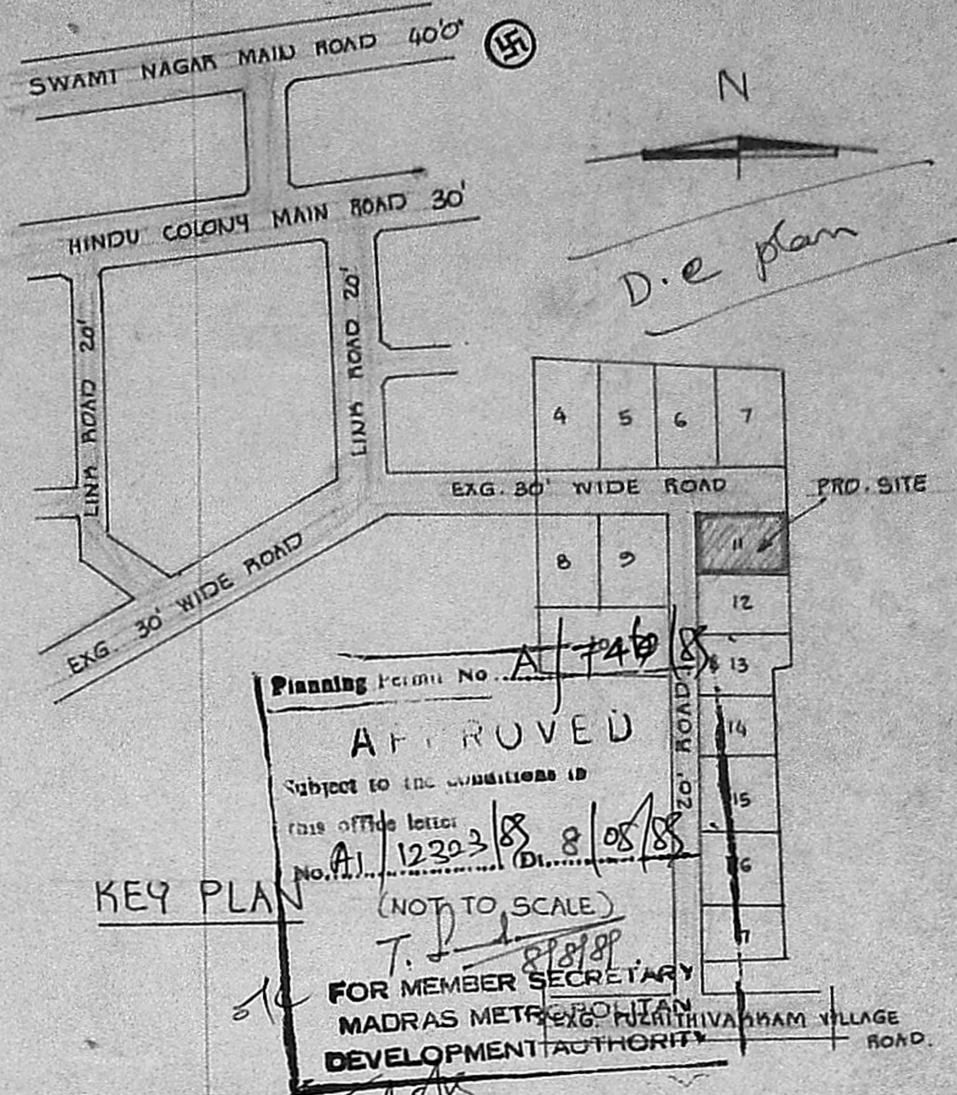 SWAMI NAGAR MAIN ROAD 40'0"
N
HINDU COLONY MAIN ROAD 30'
D.e plan
LINK ROAD 20'
LINK ROAD 20'
4 5 6 7
EXG. 30' WIDE ROAD
PRO. SITE
8 9
11
12
13
14
15
16
17
EXG. 30' WIDE ROAD
20' ROAD
Planning Permit No. A/
APPROVED
Subject to the conditions in
this office letter
No. A1/12323/88 Dt. 8/08/88
KEY PLAN
(NOT TO SCALE)
FOR MEMBER SECRETARY
MADRAS METROPOLITAN
DEVELOPMENT AUTHORITY
EXG. PUZHITHIVAKKAM VILLAGE
ROAD.